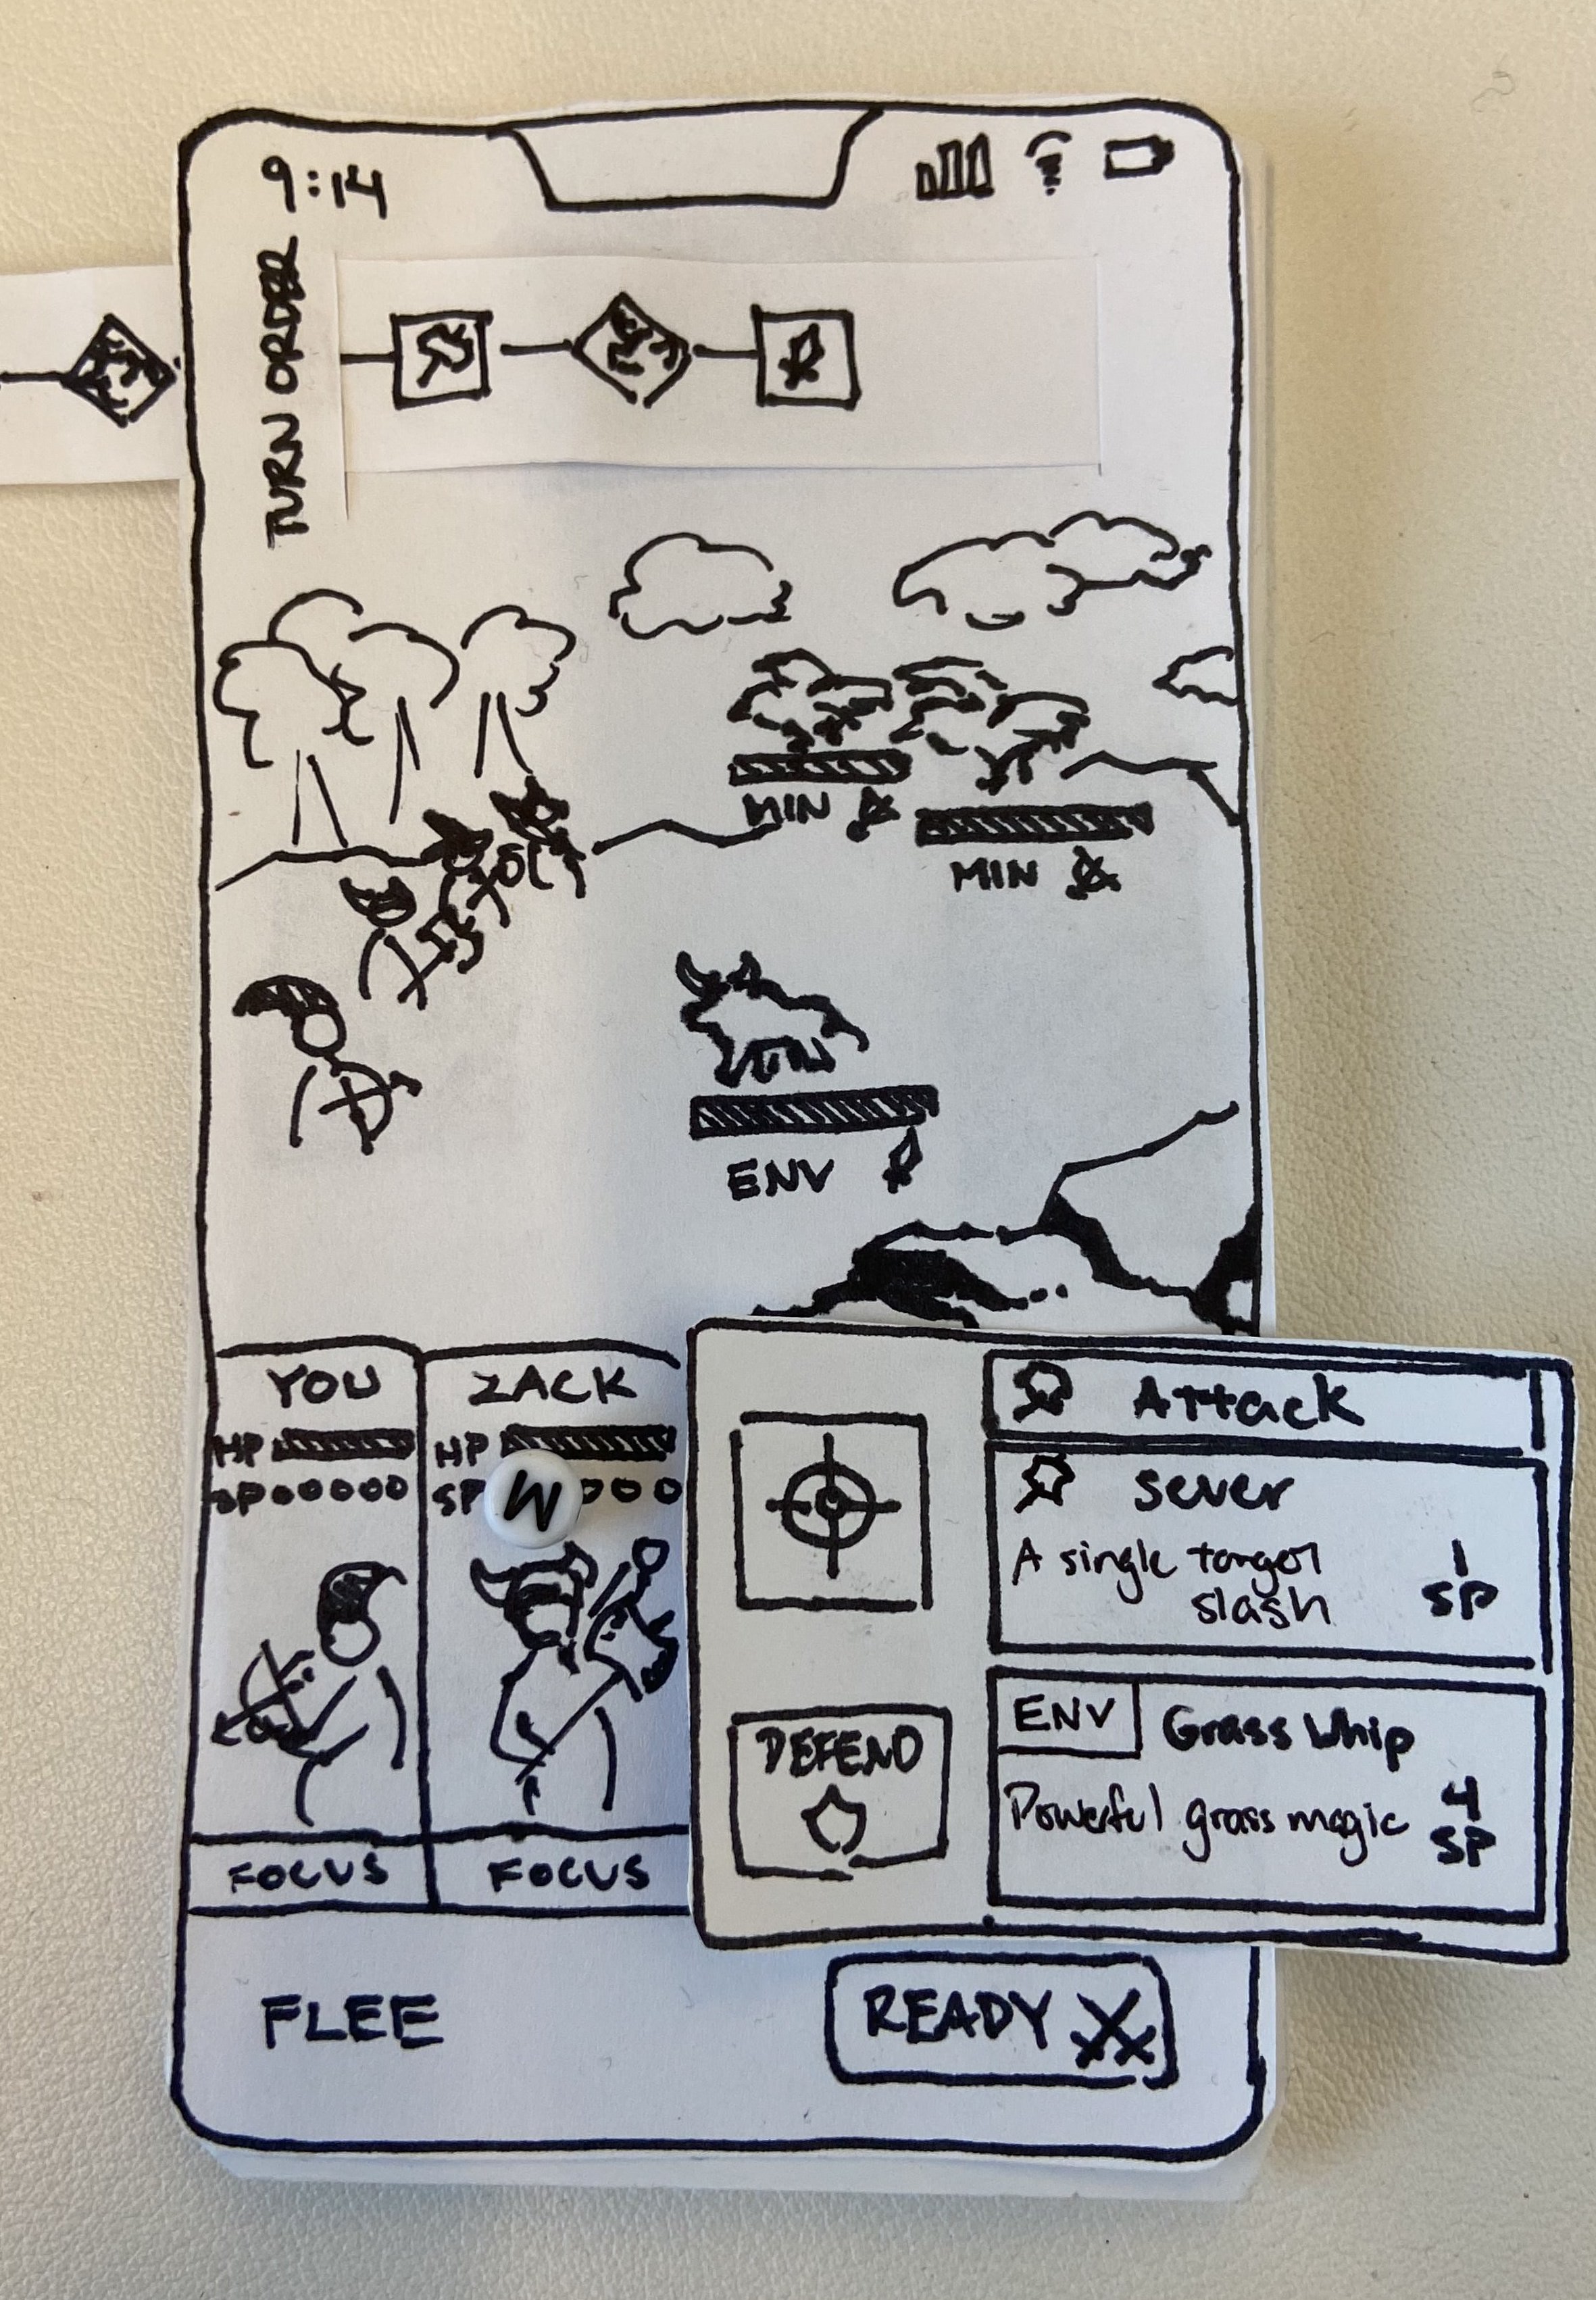 9:14
TURN ORDER
MIN
MIN
ENV
YOU
HP
SP
ZACK
HP
SP
M
FOCUS
FOCUS
Attack
Sever
A single target
slash
1
SP
DEFEND
ENV
Grass Whip
Powerful grass magic
4
SP
FLEE
READY